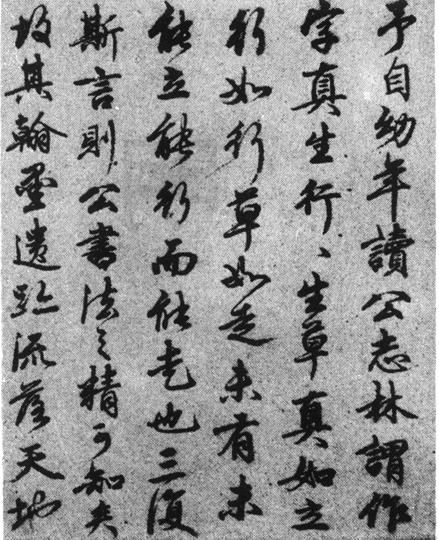 予自幼年讀公志林謂作
字真生行、生草真如立
行如行草如走未有未
能立能行而能走也三復
斯言則公書法之精可知矣
故其翰墨遺跡流落天地